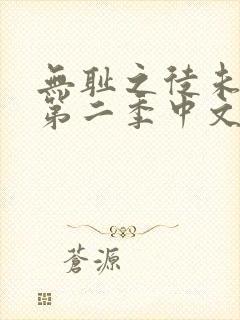 無耻之徒未
第二季中文
蒼源